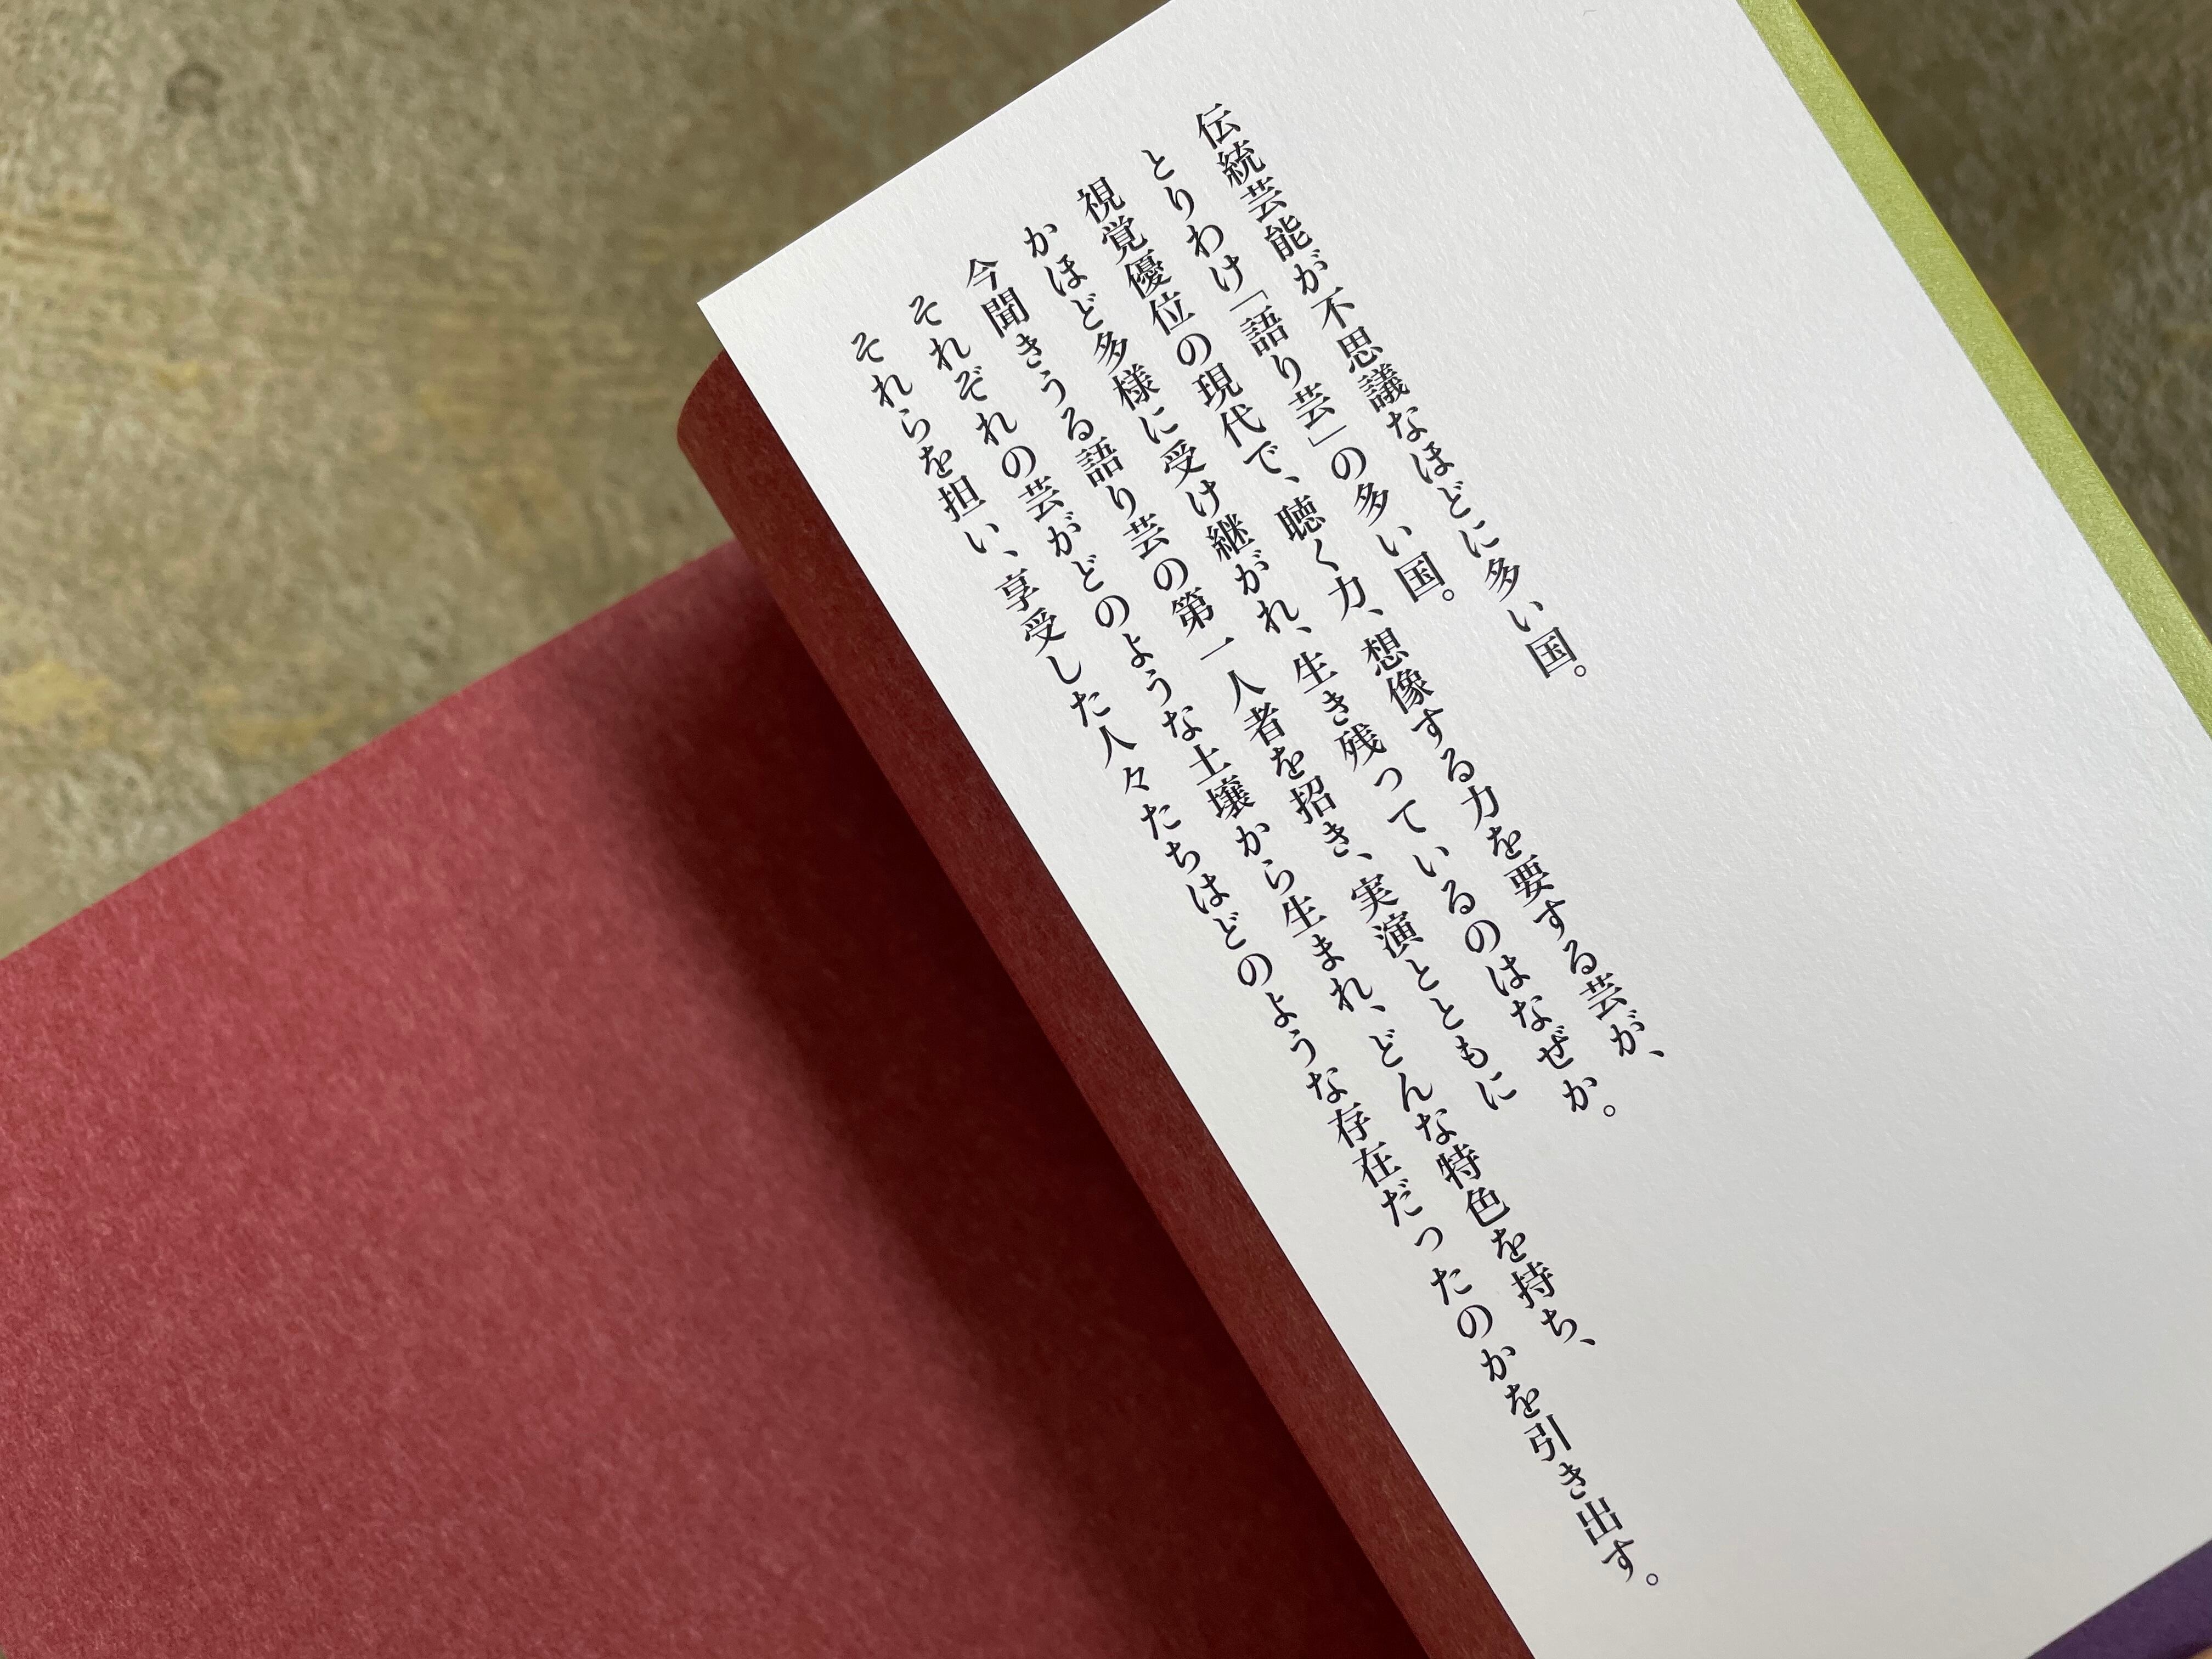 伝統芸能が不思議なほどに多い国。
とりわけ「語り芸」の多い国。
視覚優位の現代で、聴く力、想像する力を要する芸が、
かほど多様に受け継がれ、生き残っているのはなぜか。
今聞きうる語り芸の第一人者を招き、実演とともに
それぞれの芸がどのような土壌から生まれ、どんな特色を持ち、
それらを担い、享受した人々たちはどのような存在だったのかを引き出す。